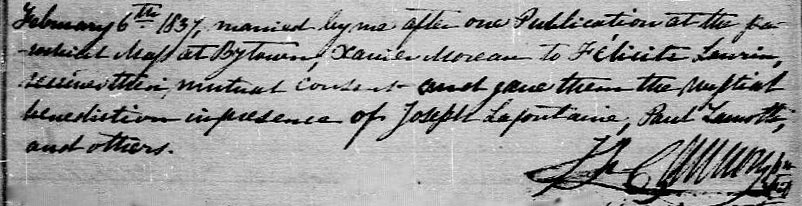 February 6th 1837, married by me after one Publication at the pa-
-rochial Mass at Bytown, Xavier Moreau to Félicité Laurin,
received their mutual consent and gave them the nuptial
benediction in presence of Joseph Lafontaine, Paul Lamothe,
and others.